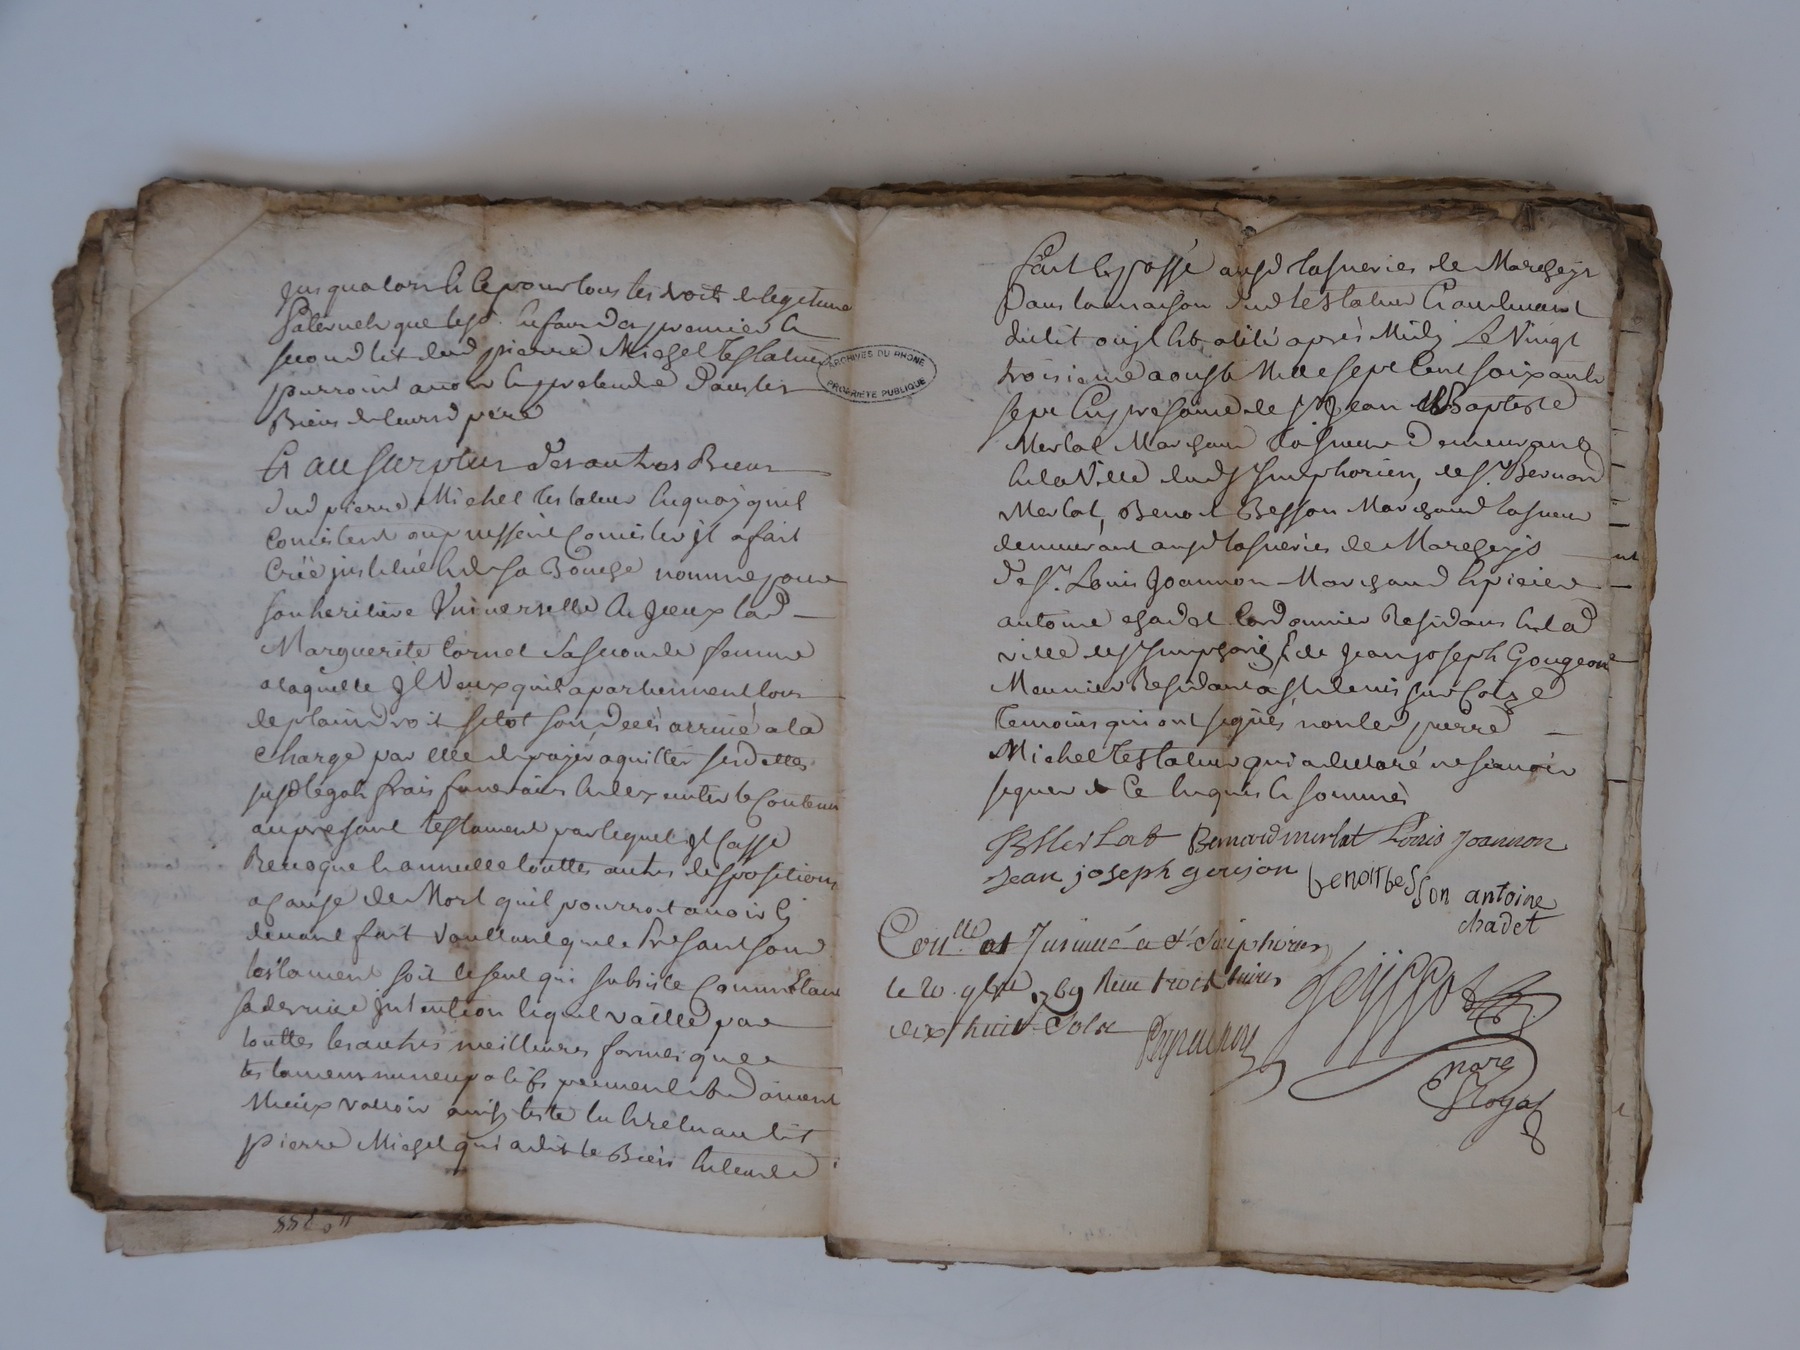 jusqualors et ce pour tous les droits de legitime
Paternels que lesd. enfans des premier et
second lit dud pierre Michel testateur
pourroint avoir et pretendre dans les
Biens de leurd pere
Et au surplus des autres Biens
dud pierre Michel testateur en quoy quil
consistent ou puissent consister il a fait
créé institué et de sa Bouche nommé pour
son heritiere Universelle en Iceux lad
Marguerite Cornet sa seconde femme
a laquelle Il Veux quil apartiennent tous
de plain droit sitot son decès arrivé a la
charge par elle de payer aquitter sesd dettes
susd legats frais funeraires et dexecuter le contenu
au present testament par lequel Il Casse
Revoque et annulle touttes autres dispositions
a cause de Mort quil pourroit avoir cy
devant fait voullant que le Présent son
testament soit le seul qui subsiste comme Etant
sa derniere Intention et quil vaille par
touttes les autres meilleures formes que
testamens nuncupatifs peuvent et doivent
Mieux valloir ainsy teste lu et relu au dit
pierre Michel qui a dit le Bien entendre
ARCHIVES DU RHONE
PROPRIÉTÉ PUBLIQUE
Fait et passé auxd tasneries de Marcheys
Dans la maison dud testateur et au devant
du lit ou jl est alité après Midy Le Vingt
troisieme aoust Mille sept Cent soixante
sept En presence de sr Jean Baptiste
Merlat Marchand tasneur Demeurant
en la Ville dud St Simphorien, de Sr. Bernard
Merlat, Benoit Besson Marchand tasneur
demeurant auxd tasneries de Marcheys
de Sr. Louis Joannon Marchand Epicier
antoine chadet Cordonnier Residans en lad
ville de St Simphorien Et de Jean Joseph Gougeon
Meunier Residant a St denis sur Coize
temoins qui ont signés non led pierre
Michel testateur qui a declaré ne scavoir
signer de ce Enquis et sommés
JB Merlat Bernard merlat Louis Joannon
Jean joseph goujon benoit besson antoine
chadet
Con.lle et Insinué a St. Simphorien
le 20. 9bre 1769 Reçu trois livres
dix huit Sols
nore
Royal